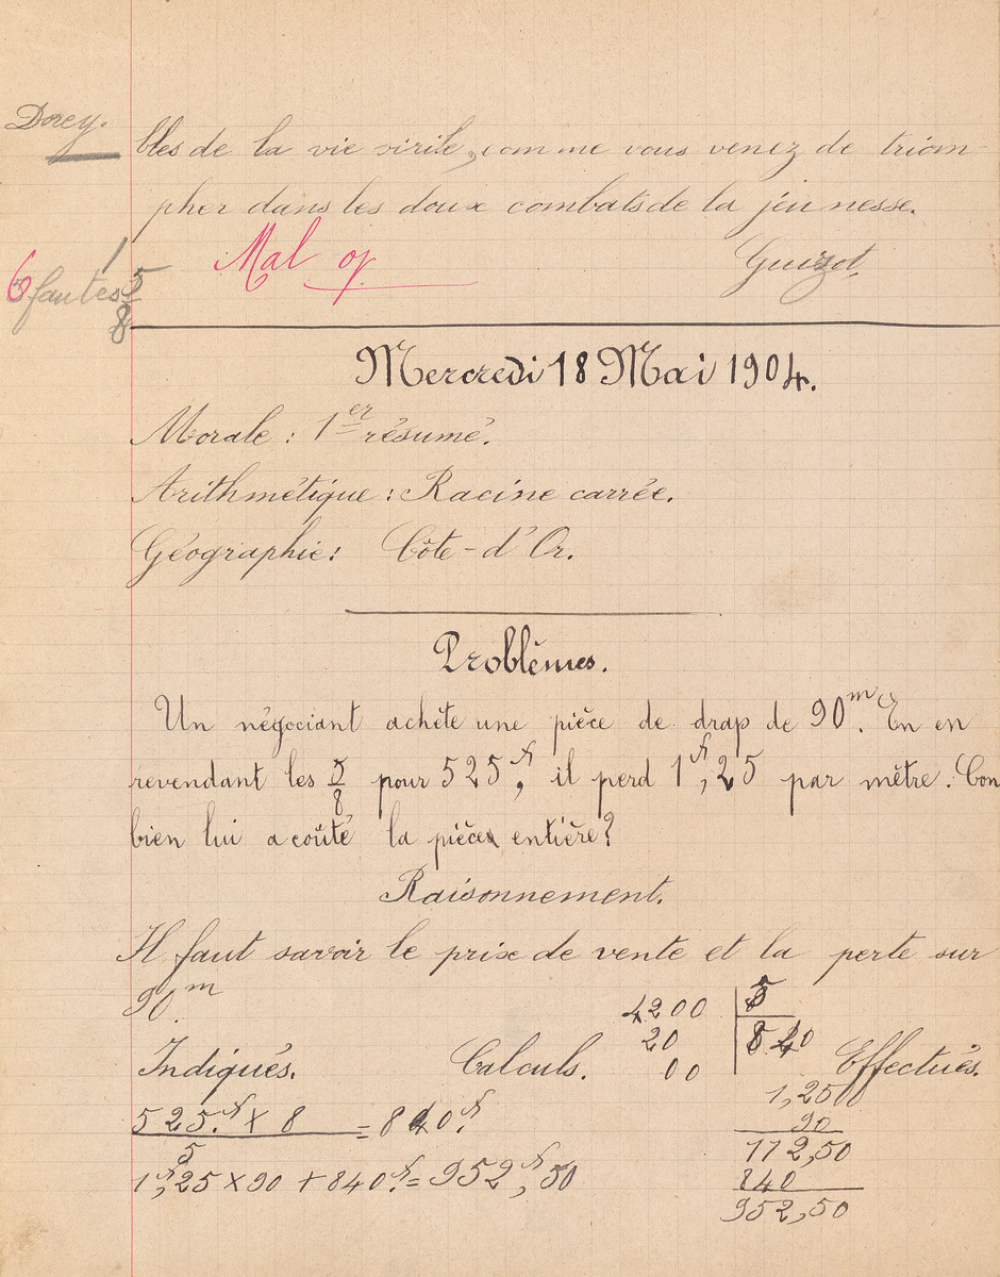 Dorey.
bles de la vie virile, comme vous venez de triom-
pher dans les doux combats de la jeunesse.
Mal
Guizot.
6 fautes 5
8
Mercredi 18 Mai 1904.
Morale : 1er résumé.
Arithmétique : Racine carrée.
Géographie : Côte-d'Or.
Problèmes.
Un négociant achète une pièce de drap de 90m. En en
revendant les 5/8 pour 525f, il perd 1f,25 par mètre. Com
bien lui a coûté la pièce entière?
Raisonnement.
Il faut savoir le prix de vente et la perte sur
90m.
4200 5
20 840
00
Indiqués. Calculs. Effectués.
525f. x 8 = 840f.
5
1f,25 x 90 + 840f. = 952f,50
1,25
90
112,50
840
952,50